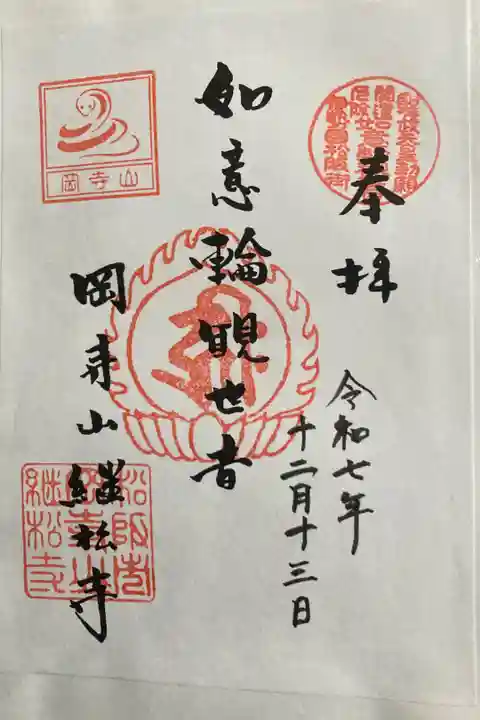 奉拝
令和七年
十二月十三日
如意輪観世音
岡寺山 継松寺
岡寺山
松阪市
岡寺山
継松寺